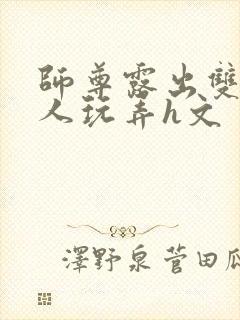 師尊露出雙
人玩弄h文
澤野泉菅田